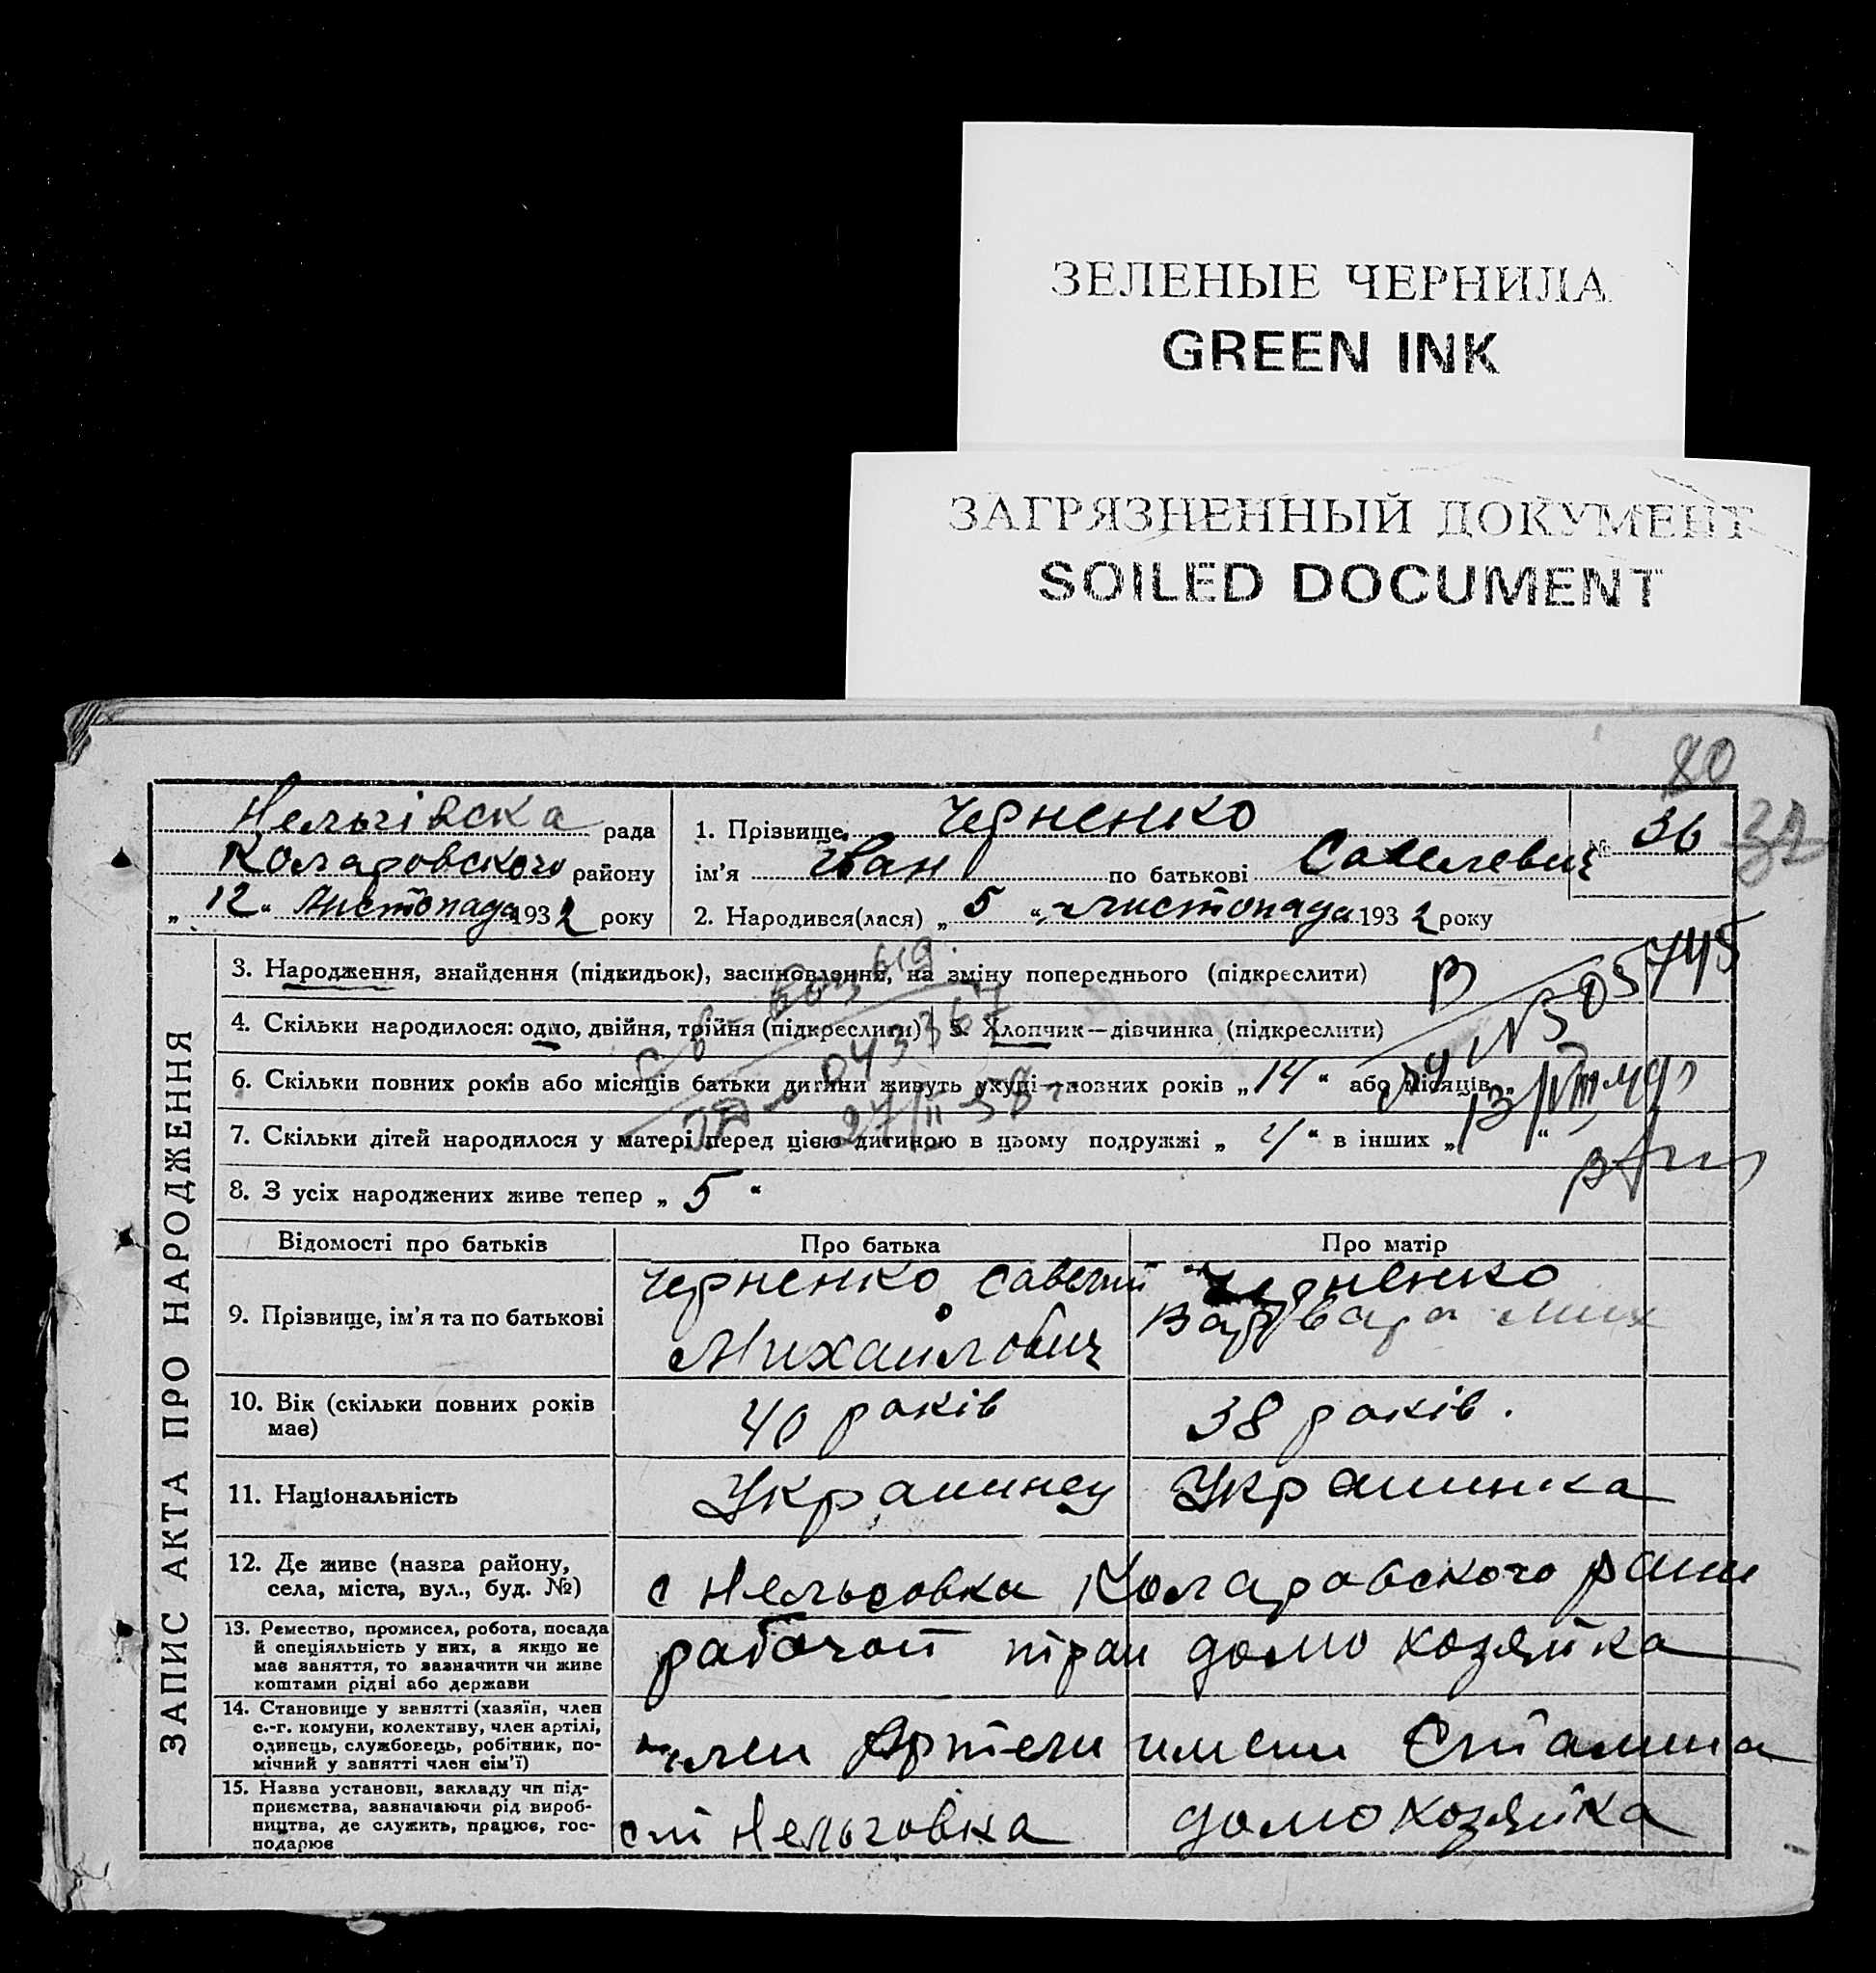 ЗЕЛЕНЫЕ ЧЕРНИЛА
GREEN INK
ЗАГРЯЗНЕННЫЙ ДОКУМЕНТ
SOILED DOCUMENT
80
32
ЗАПИС АКТА ПРО НАРОДЖЕННЯ
Нельгівска рада
Коларовского району
„ 12 “ Листопада 1932 року
1. Прізвище Черненко
ім'я Иван по батькові Савелевич
№ 36
2. Народився(лася) „ 5 “ Листопада 1932 року
3. Народження, знайдення (підкидьок), засиновлення, на зміну попереднього (підкреслити)
4. Скільки народилося: одно, двійня, трійня (підкреслити) 5. Хлопчик—дівчинка (підкреслити)
6. Скільки повних років або місяців батьки дитини живуть укупі—повних років „ 14 “ або місяців „
7. Скільки дітей народилося у матері перед цією дитиною в цьому подружжі „ 4 “ в інших „ “
8. З усіх народжених живе тепер „ 5 “
043367
27/II 58
Відомості про батьків Про батька Про матір
9. Прізвище, ім'я та по батькові
Черненко Савелий
Михайлович
Черненко
Варвара Мих
10. Вік (скільки повних років має) 40 років 38 років.
11. Національність Украинец Украинка
12. Де живе (назва району,
села, міста, вул., буд. №)
с Нельговка Коларовского
13. Ремество, промисел, робота, посада
й спеціяльність у них, а якщо не
має заняття, то зазначити чи живе
коштами рідні або держави
домохозяйка
14. Становище у занятті (хазяїн, член
с.-г. комуни, колективу, член артілі,
одинець, службовець, робітник, по-
мічний у занятті член сім'ї)
член Артели имени Сталина
15. Назва установи, закладу чи під-
приємства, зазначаючи рід вироб-
ництва, де служить, працює, гос-
подарює
Нельговка домохозяйка